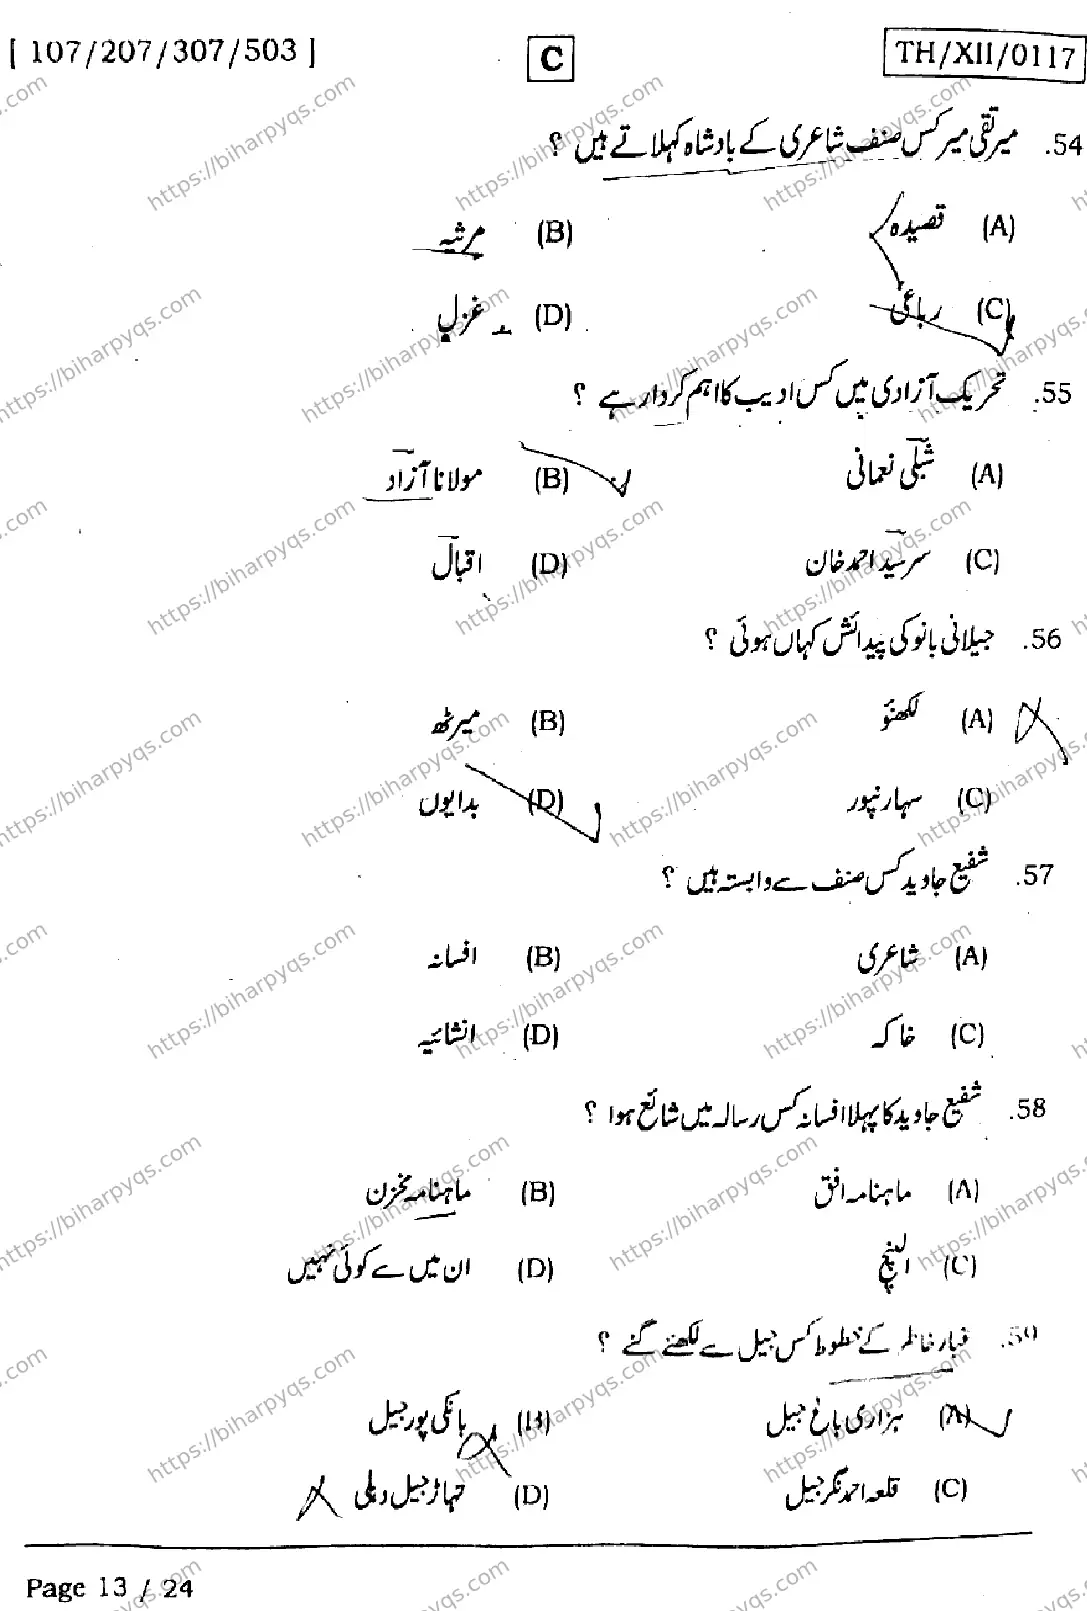 [ 107/207/307/503 ] C TH/XII/0117
54. میر تقی میر کس صنف شاعری کے بادشاہ کہلاتے ہیں ؟
(A) قصیدہ (B) مرثیہ
(C) رباعی (D) غزل
55. تحریک آزادی میں کس ادیب کا اہم کردار ہے ؟
(A) شبلی نعمانی (B) مولانا آزاد
(C) سرسید احمد خان (D) اقبال
56. جیلانی بانو کی پیدائش کہاں ہوئی ؟
(A) لکھنؤ (B) میرٹھ
(C) سہارنپور (D) بدایوں
57. شفیع جاوید کس صنف سے وابستہ ہیں ؟
(A) شاعری (B) افسانہ
(C) خاکہ (D) انشائیہ
58. شفیع جاوید کا پہلا افسانہ کس رسالہ میں شائع ہوا ؟
(A) ماہنامہ افق (B) ماہنامہ مخزن
(C) الپنچ (D) ان میں سے کوئی نہیں
59. غبار خاطر کے خطوط کس جیل سے لکھے گئے ؟
(A) ہزاری باغ جیل (B) بانکی پور جیل
(C) قلعہ احمد نگر جیل (D) تہاڑ جیل دہلی
Page 13 / 24
https://biharpyqs.com